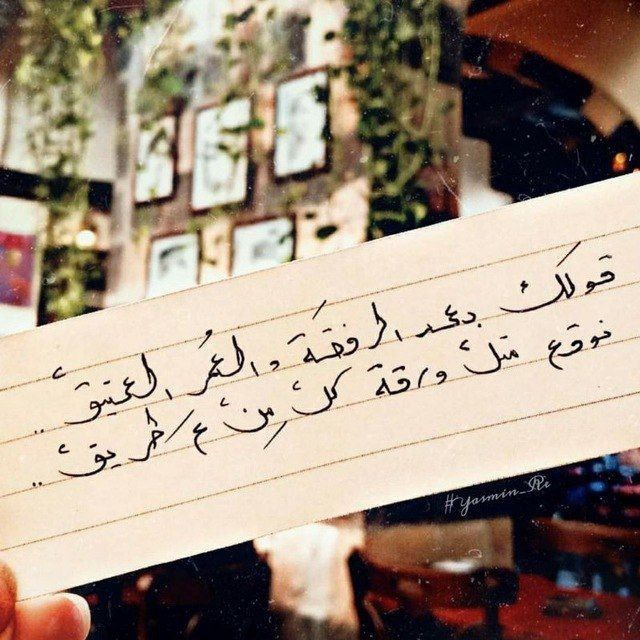 قولك بعد الرفقَة والعُمر العتيق ..
نوقع متل ورقة كل مِن ع طريق ..
#yasmin_Re